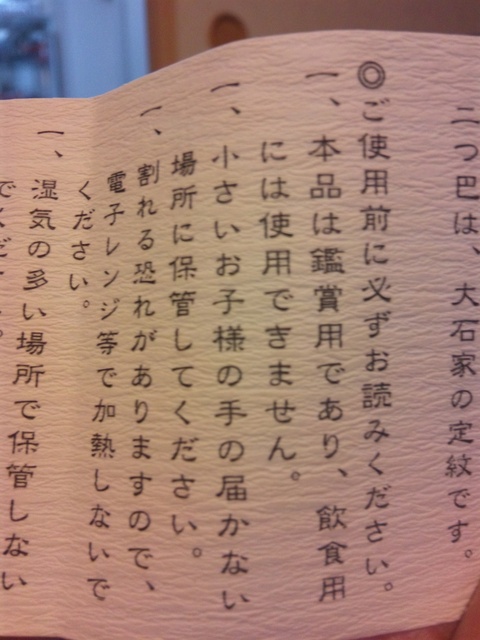 二つ巴は、大石家の定紋です。
◎ご使用前に必ずお読みください。
一、本品は鑑賞用であり、飲食用
には使用できません。
一、小さいお子様の手の届かない
場所に保管してください。
一、割れる恐れがありますので、
電子レンジ等で加熱しないで
ください。
一、湿気の多い場所で保管しない
でくだ